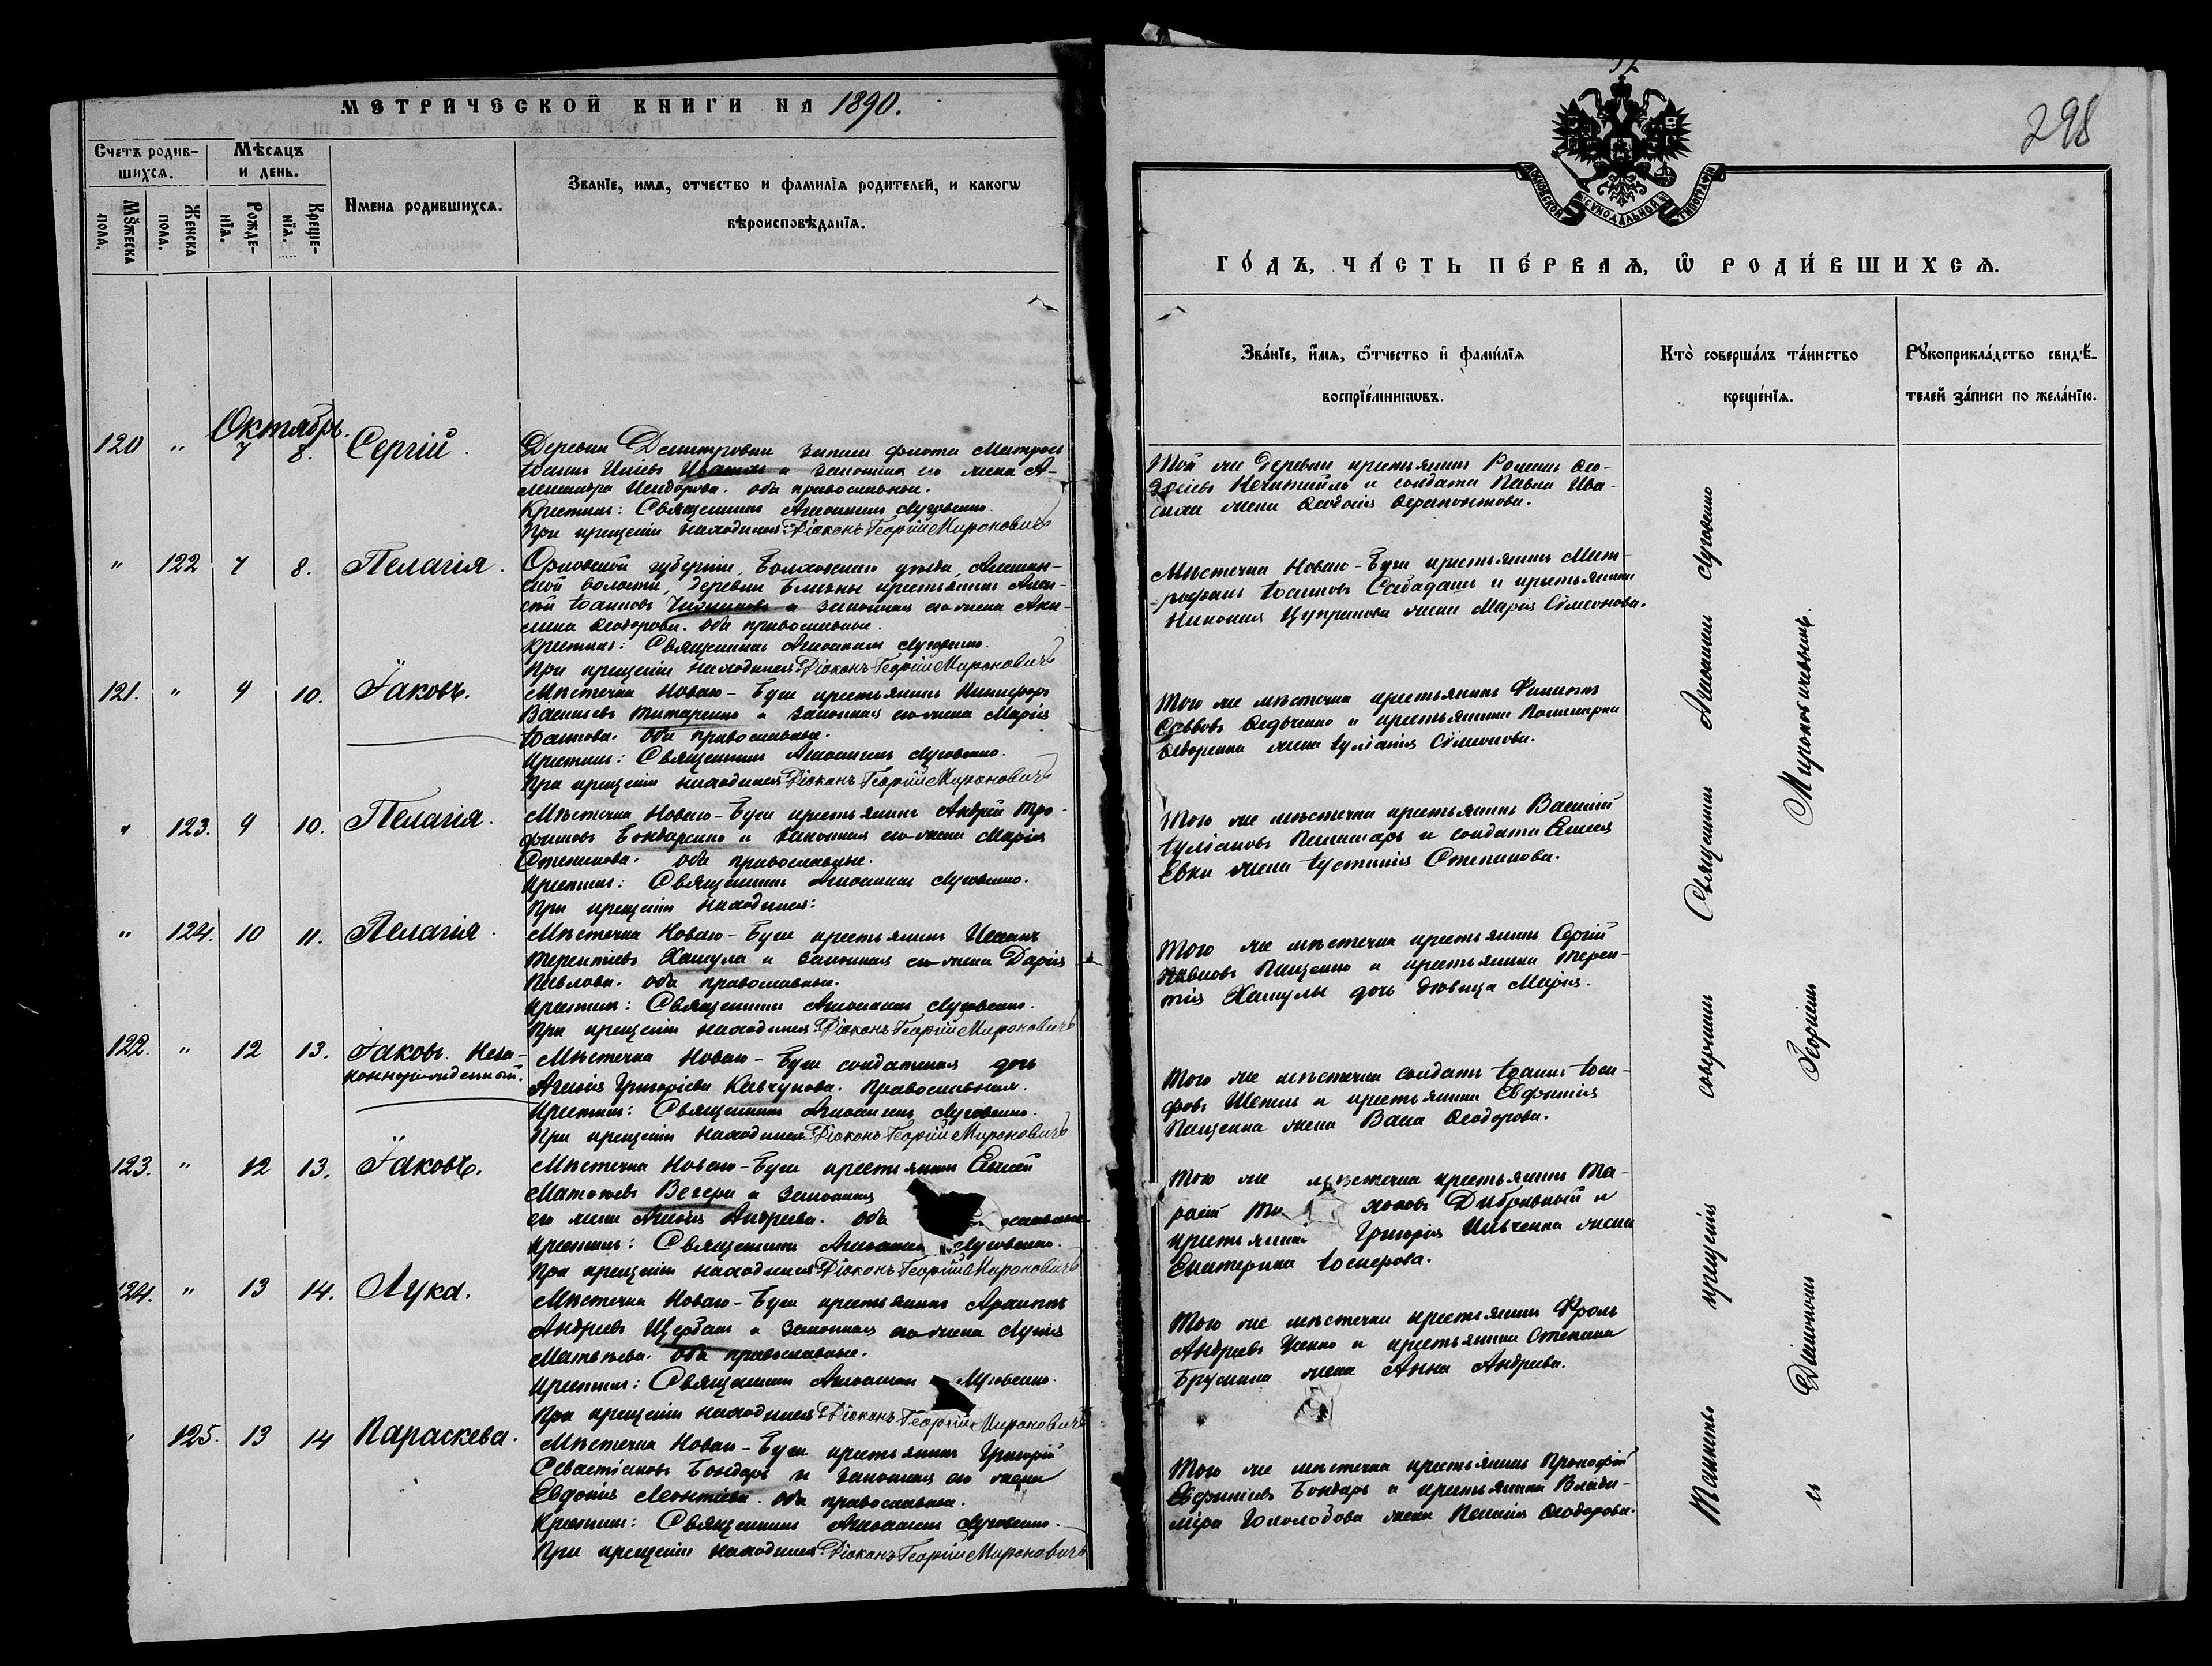 МЕТРИЧЕСКОЙ КНИГИ НА 1890.
Счетъ родив-
шихся.
Мѣсяцъ
и день.
Имена родившихся.
Званіе, имя, отчество и фамилія родителей, и какогѡ
вѣроисповѣданія.
Мꙋжеска
пола.
Женска
пола.
Рожде-
нія.
Креще-
нія.
Октябрь.
120 " 7 8. Сергій.
Деревни Димитровки запаса флота Матросъ
Іоаннъ Иліевъ и законная его жена А-
лександра Исидорова. оба православные.
Крестилъ: Священникъ Аѳанасій Луговенко.
При крещеніи находился: Діаконъ Георгій Мироновичъ
" 122 7 8. Пелагія.
Орловской губерніи, Болховскаго уѣзда,
ской волости, деревни крестьянинъ Алек-
сѣй Іоанновъ и законная его жена Аки-
лина Ѳеодорова. оба православные.
Крестилъ: Священникъ Аѳанасій Луговенко.
При крещеніи находился Діаконъ Георгій Мироновичъ
121. " 9 10. Іаковъ.
Мѣстечка Новаго-Буга крестьянинъ Никифоръ
Васильевъ Титаренко и законная его жена Марія
Іоаннова. оба православные.
Крестилъ: Священникъ Аѳанасій Луговенко.
При крещеніи находился Діаконъ Георгій Мироновичъ
" 123. 9 10. Пелагія.
Мѣстечка Новаго-Буга крестьянинъ Андрей Тро-
фимовъ Бондаренко и законная его жена Марія
Степанова. оба православные.
Крестилъ: Священникъ Аѳанасій Луговенко.
При крещеніи находился:
" 124. 10 11. Пелагія.
Мѣстечка Новаго-Буга крестьянинъ
Терентіевъ Хашула и законная его жена Дарія
Павлова. оба православные.
Крестилъ: Священникъ Аѳанасій Луговенко.
При крещеніи находился Діаконъ Георгій Мироновичъ
122. " 12 13. Іаковъ. Неза-
коннорожденный.
Мѣстечка Новаго-Буга солдатская дочь
Агаѳія Григоріева Кавчукова. Православная.
Крестилъ: Священникъ Аѳанасій Луговенко.
При крещеніи находился Діаконъ Георгій Мироновичъ
123. " 12 13. Іаковъ.
Мѣстечка Новаго-Буга крестьянинъ Елисей
Матѳеевъ Вегера и законная
его жена Агаѳія Андреева. оба
Крестилъ: Священникъ Аѳанасій Луговенко.
При крещеніи находился Діаконъ Георгій Мироновичъ
124. " 13 14. Лука.
Мѣстечка Новаго-Буга крестьянинъ Архиппъ
Андреевъ Щербакъ и законная его жена Лукія
Матѳеева. оба православные.
Крестилъ: Священникъ Аѳанасій Луговенко.
При крещеніи находился Діаконъ Георгій Мироновичъ
125. 13 14 Параскева.
Мѣстечка Новаго-Буга крестьянинъ Григорій
Севастіановъ Бондарь и законная его жена
Евдокія Леонтіева. оба православные.
Крестилъ: Священникъ Аѳанасій Луговенко.
При крещеніи находился Діаконъ Георгій Мироновичъ
298
МОСКОВСКОЙ СѴНОДАЛЬНОЙ ТИПОГРАФІИ
ГО́ДЪ, ЧА́СТЬ ПЕ́РВАЯ, Ѡ РОДИ́ВШИХСЯ.
Зва́ніе, и҆́мя, ѻ҆́тчество и҆ фами́лія
воспріе́мникѡвъ.
Кто̀ соверша́лъ та́инство
креще́нія.
Рꙋкоприкла́дство свидѣ́-
телей за́писи по жела́нію.
Той же деревни крестьянинъ Романъ Ѳео-
досіевъ и солдата Павла Ива-
жена Ѳеодосія Ѳерапонтова.
Мѣстечка Новаго-Буга крестьянинъ Мит-
рофанъ Іоанновъ Сабаданъ и крестьянина
Николая Цупракова жена Марія Сѵмеонова.
Того же мѣстечка крестьянинъ Филиппъ
Саввовъ Ѳедченко и крестьянина Поликарпа
жена Іуліанія Сѵмеонова.
Того же мѣстечка крестьянинъ Василій
Іуліановъ и солдата Елисея
Евки жена Іустинія Степанова.
Того же мѣстечка крестьянинъ Сергій
Павловъ Пащенко и крестьянина Терен-
тія Хашулы дочь дѣвица Марія.
Того же мѣстечка солдатъ Іоаннъ Іоси-
фовъ Шепель и крестьянина Евфимія
Пащенка жена Васса Ѳеодорова.
Того же мѣстечка крестьянинъ Та-
расій Дибривный и
крестьянина Григорія Ильченка жена
Екатерина Іосифова.
Того же мѣстечка крестьянинъ Фролъ
Андреевъ и крестьянина Стефана
жена Анна Андреева.
Того же мѣстечка крестьянинъ Прокофій
Евфиміевъ Бондарь и крестьянина Влади-
міра Гололобова жена Пелагія Ѳеодорова.
Таинство крещенія совершилъ Священникъ Аѳанасій Луговенко
съ Діакономъ Георгіемъ Мироновичемъ.